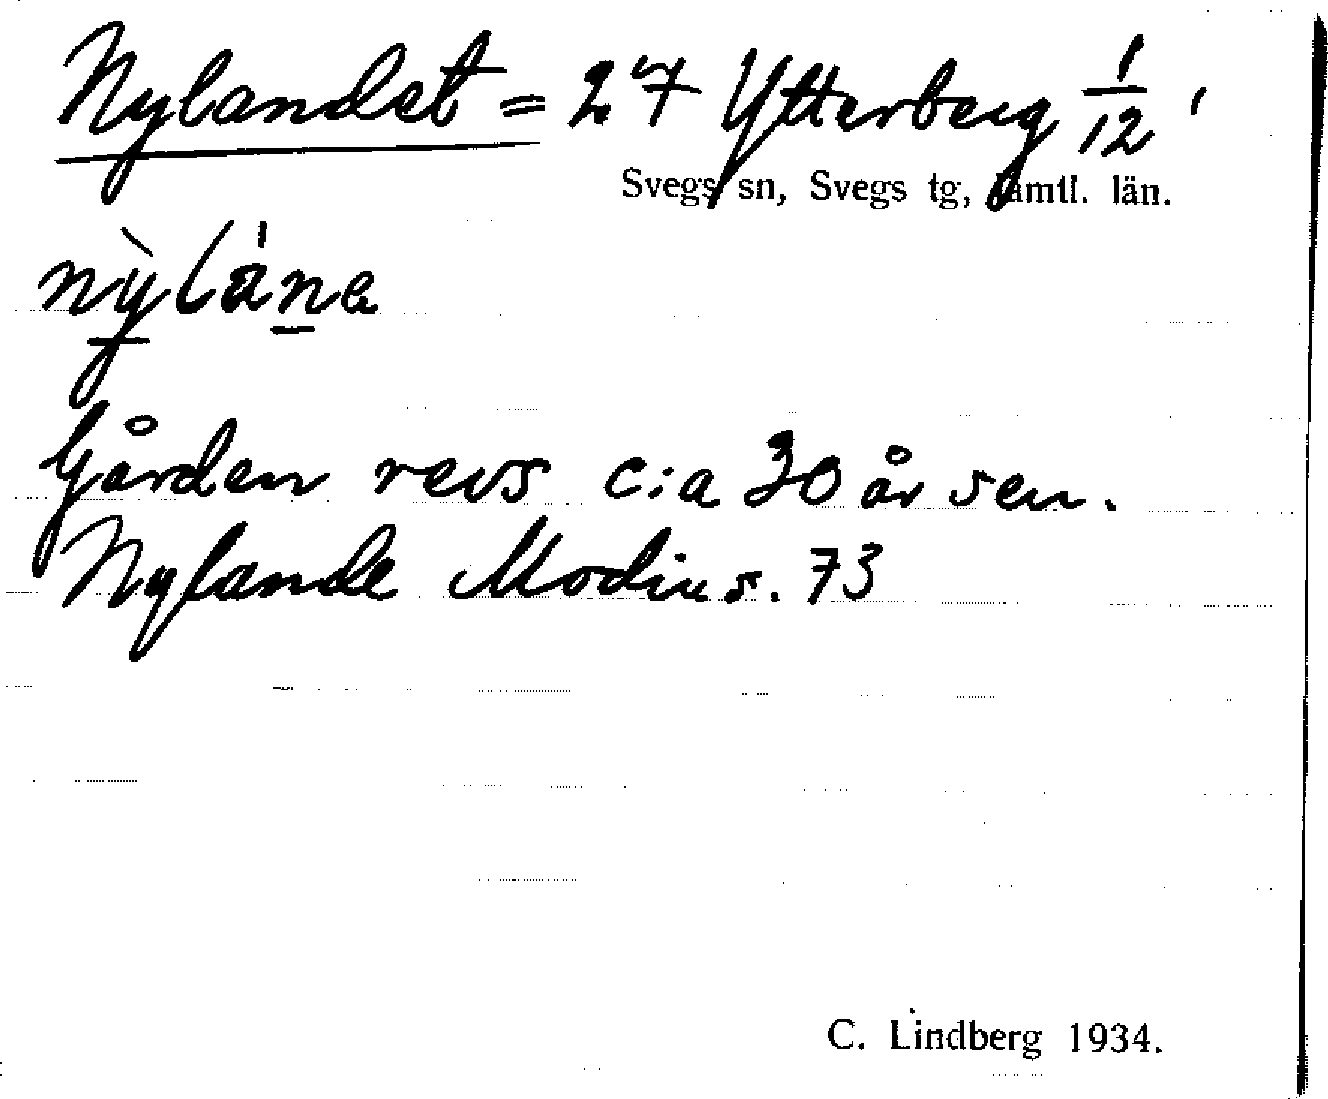 Nylandet = 27 Ytterberg 1/12,
Svegs sn, Svegs tg, Jämtl. län.
nỳlána
Gården revs c:a 30 år sen.
Nylande Modins. 73
C. Lindberg 1934.